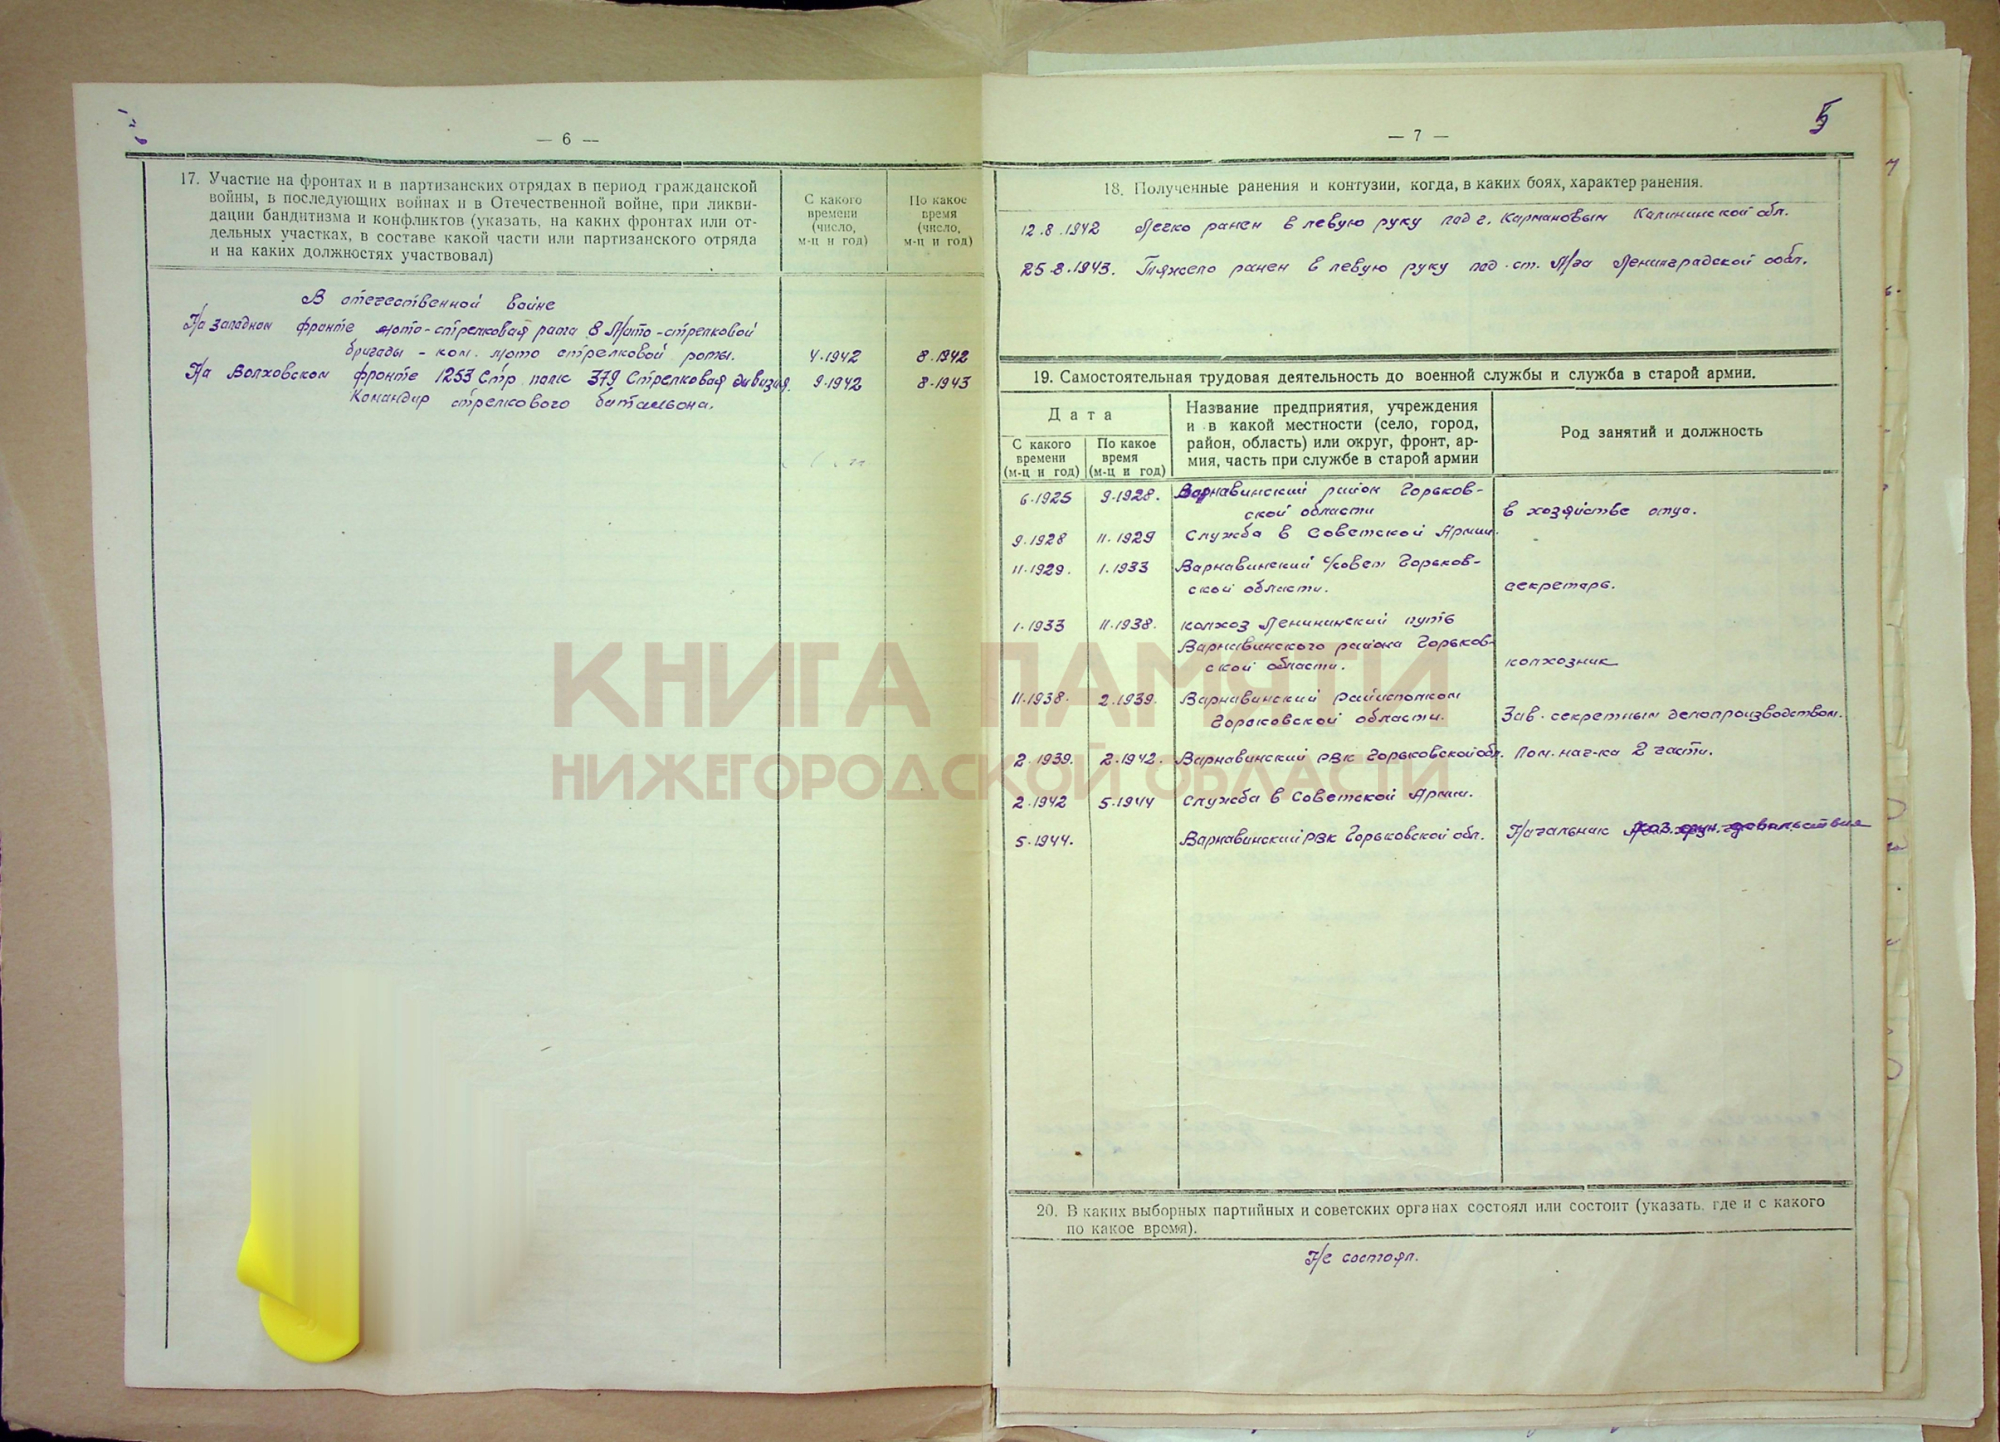 — 6 —
17. Участие на фронтах и в партизанских отрядах в период гражданской
войны, в последующих войнах и в Отечественной войне, при ликви-
дации бандитизма и конфликтов (указать, на каких фронтах или от-
дельных участках, в составе какой части или партизанского отряда
и на каких должностях участвовал)
С какого
времени
(число,
м-ц и год)
По какое
время
(число,
м-ц и год)
В отечественной войне
На западном фронте мото-стрелковая рота 8 Мото-стрелковой
бригады - ком. мото стрелковой роты. 4.1942 8.1942
На Волховском фронте 1253 Стр. полк 379 Стрелковая дивизия. 9.1942 8.1943
Командир стрелкового батальона.
— 7 —
5
18. Полученные ранения и контузии, когда, в каких боях, характер ранения.
12.8.1942 Легко ранен в левую руку под г. Кармановым Калининской обл.
25.8.1943. Тяжело ранен в левую руку под ст. Мга Ленинградской обл.
19. Самостоятельная трудовая деятельность до военной службы и служба в старой армии.
Дата
С какого
времени
(м-ц и год)
По какое
время
(м-ц и год)
Название предприятия, учреждения
и в какой местности (село, город,
район, область) или округ, фронт, ар-
мия, часть при службе в старой армии
Род занятий и должность
6.1925 9.1928. Варнавинский район Горьков-
ской области в хозяйстве отца.
9.1928 11.1929 Служба в Советской Армии.
11.1929. 1.1933 Варнавинский с/совет Горьков-
ской области. секретарь.
1.1933 11.1938. колхоз Ленининский путь
Варнавинского района Горьков-
ской области. колхозник
11.1938. 2.1939. Варнавинский Райисполком
Горьковской области. Зав. секретным делопроизводством.
2.1939. 2.1942. Варнавинский РВК Горьковской обл. Пом. нач-ка 2 части.
2.1942 5.1944 Служба в Советской Армии.
5.1944. Варнавинский РВК Горьковской обл. Начальник довольствия
20. В каких выборных партийных и советских органах состоял или состоит (указать, где и с какого
по какое время).
Не состоял.
КНИГА ПАМЯТИ
НИЖЕГОРОДСКОЙ ОБЛАСТИ